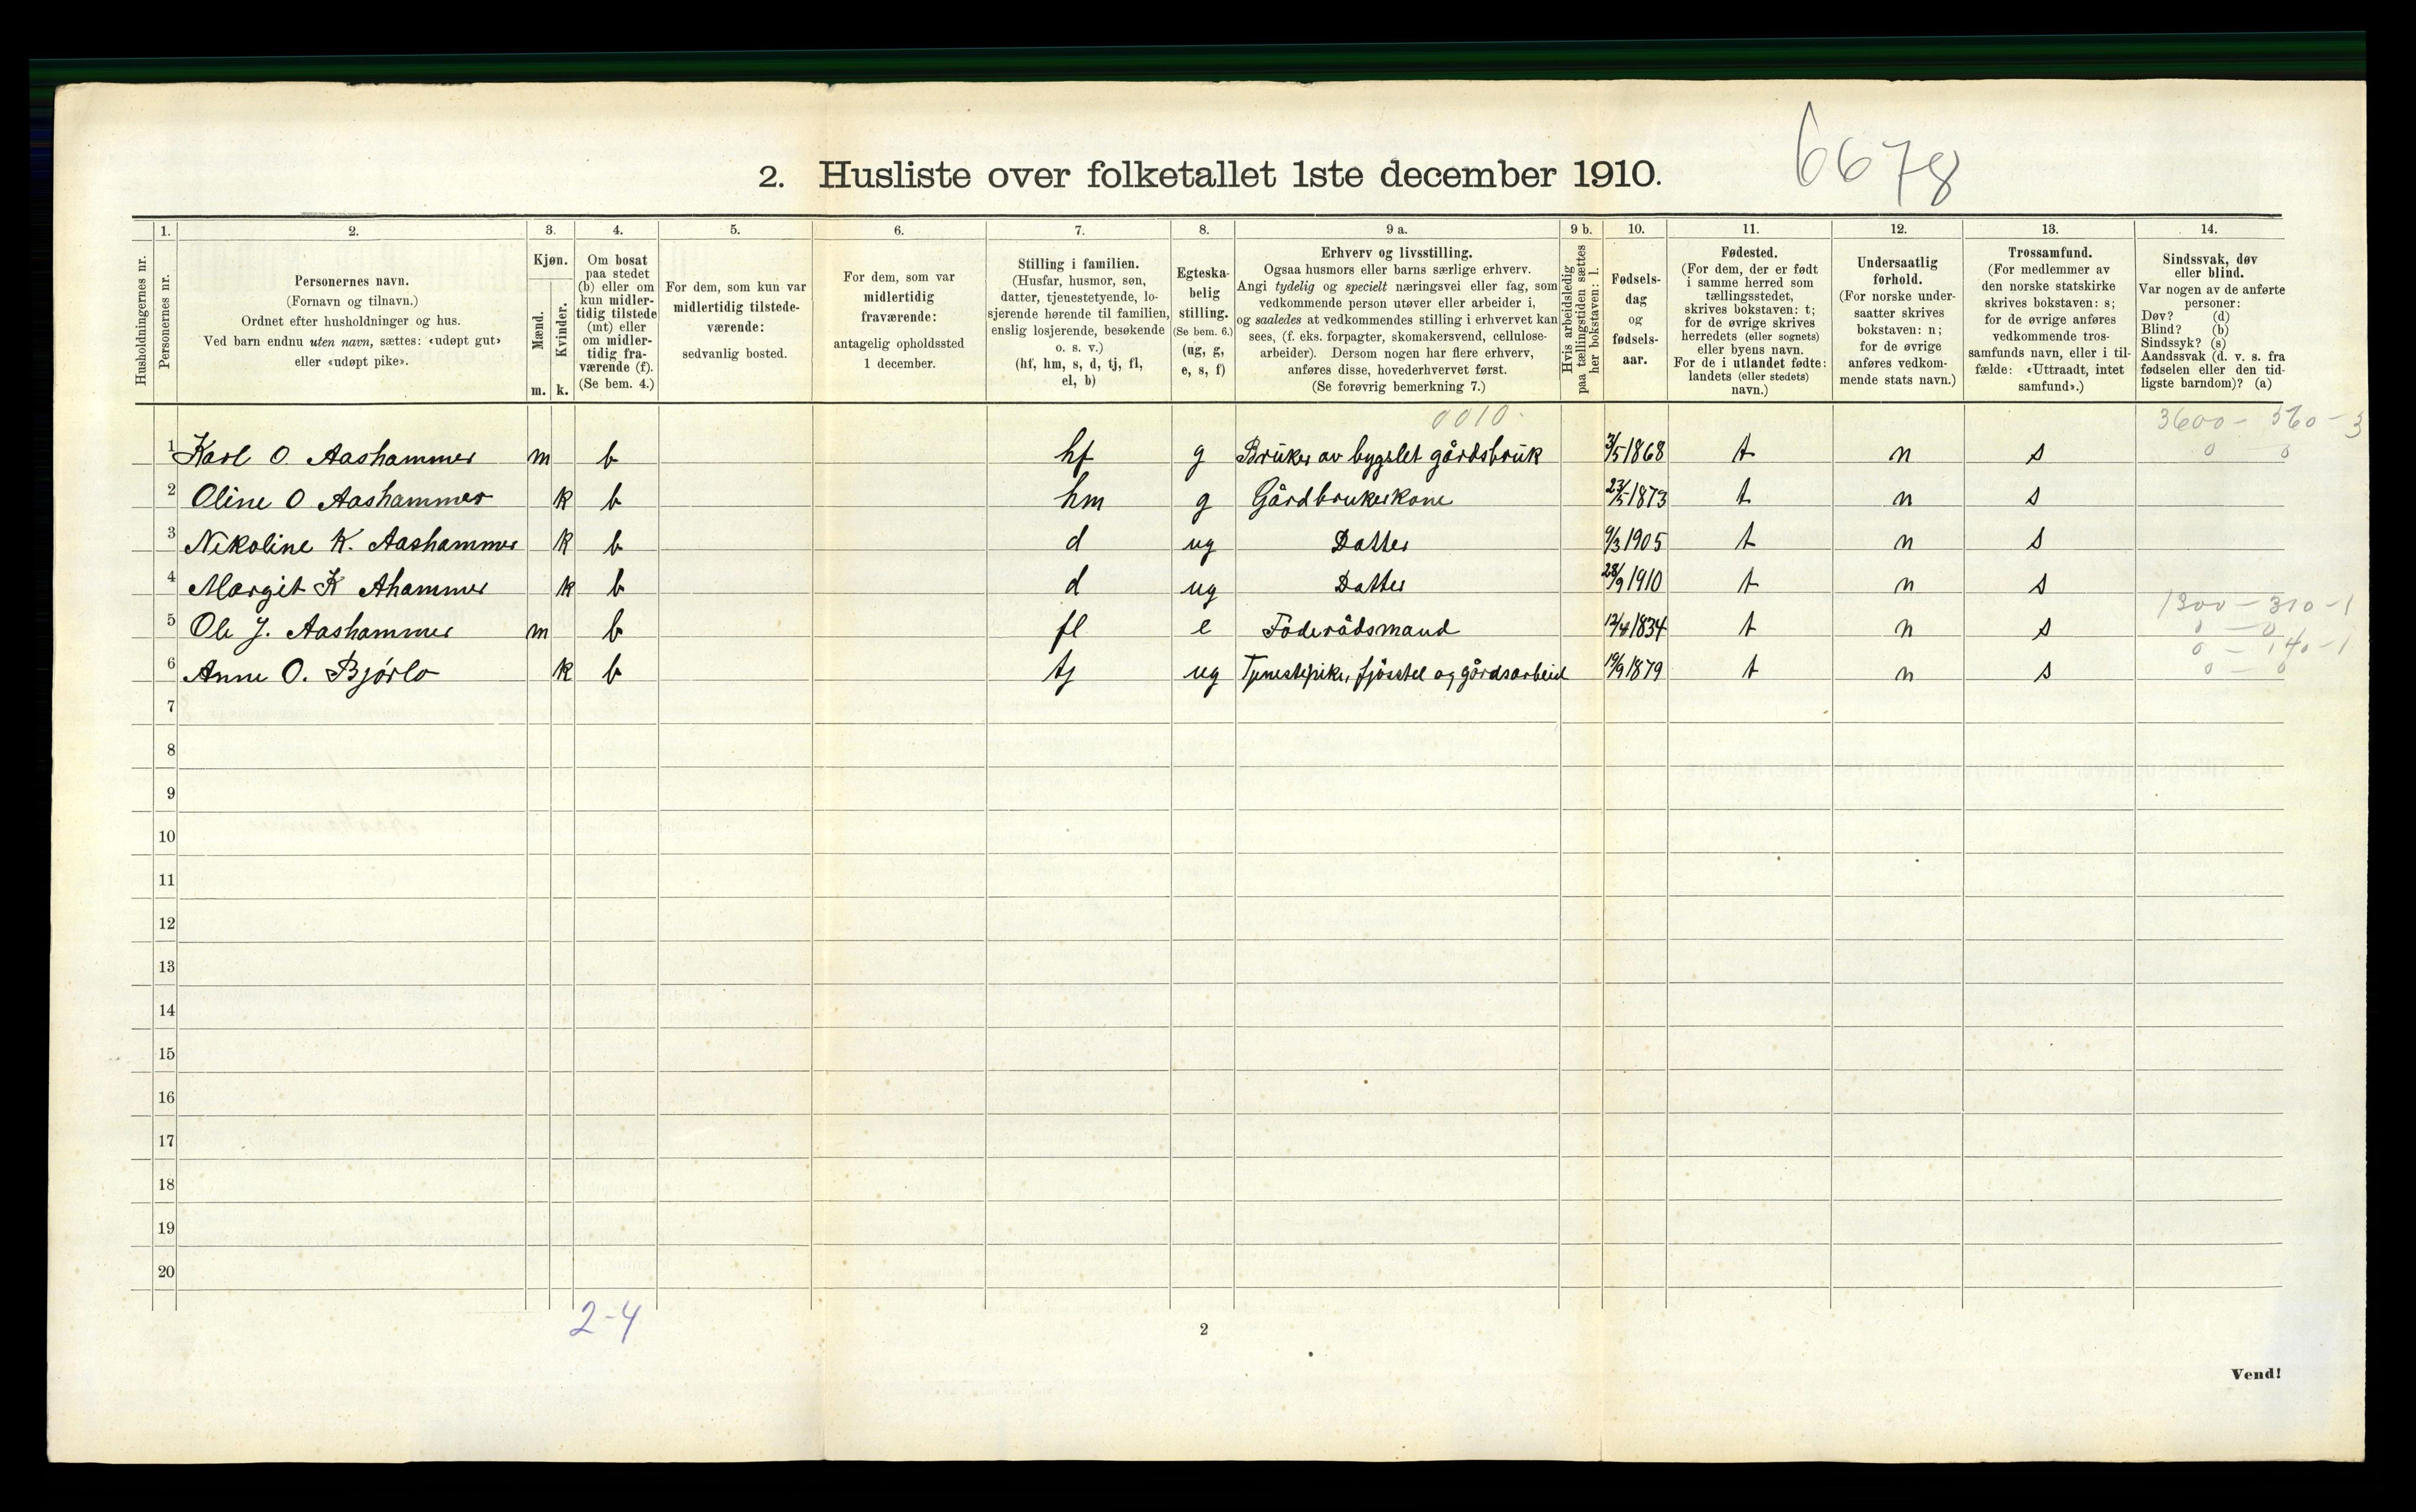 6678
2. Husliste over folketallet 1ste december 1910.
Husholdningernes nr.
1. Personernes nr.
2. Personernes navn.
(Fornavn og tilnavn.)
Ordnet efter husholdninger og hus.
Ved barn endnu uten navn, sættes: «udøpt gut»
eller «udøpt pike».
3. Kjøn.
Mænd. m.
Kvinder. k.
4. Om bosat
paa stedet
(b) eller om
kun midler-
tidig tilstede
(mt) eller
om midler-
tidig fra-
værende (f).
(Se bem. 4.)
5. For dem, som kun var
midlertidig tilstede-
værende:
sedvanlig bosted.
6. For dem, som var
midlertidig
fraværende:
antagelig opholdssted
1 december.
7. Stilling i familien.
(Husfar, husmor, søn,
datter, tjenestetyende, lo-
sjerende hørende til familien,
enslig losjerende, besøkende
o. s. v.)
(hf, hm, s, d, tj, fl,
el, b)
8. Egteska-
belig
stilling.
(Se bem. 6.)
(ug, g,
e, s, f)
9 a. Erhverv og livsstilling.
Ogsaa husmors eller barns særlige erhverv.
Angi tydelig og specielt næringsvei eller fag, som
vedkommende person utøver eller arbeider i,
og saaledes at vedkommendes stilling i erhvervet kan
sees, (f. eks. forpagter, skomakersvend, cellulose-
arbeider). Dersom nogen har flere erhverv,
anføres disse, hovederhvervet først.
(Se forøvrig bemerkning 7.)
9 b. Hvis arbeidsledig
paa tællingstiden sættes
her bokstaven: l.
10. Fødsels-
dag
og
fødsels-
aar.
11. Fødested.
(For dem, der er født
i samme herred som
tællingsstedet,
skrives bokstaven: t;
for de øvrige skrives
herredets (eller sognets)
eller byens navn.
For de i utlandet fødte:
landets (eller stedets)
navn.)
12. Undersaatlig
forhold.
(For norske under-
saatter skrives
bokstaven: n;
for de øvrige
anføres vedkom-
mende stats navn.)
13. Trossamfund.
(For medlemmer av
den norske statskirke
skrives bokstaven: s;
for de øvrige anføres
vedkommende tros-
samfunds navn, eller i til-
fælde: «Uttraadt, intet
samfund».)
14. Sindssvak, døv
eller blind.
Var nogen av de anførte
personer:
Døv? (d)
Blind? (b)
Sindssyk? (s)
Aandssvak (d. v. s. fra
fødselen eller den tid-
ligste barndom)? (a)
0010 3600 - 560 - 3
1 Karl O. Aashammer m b hf g Bruker av bygslet gårdsbruk 3/5 1868 t n s 0 0
2 Oline O Aashammer k b hm g Gårdbrukerkone 23/5 1873 t n s
3 Nikoline K. Aashammer k b d ug Datter 9/3 1905 t n s
4 Margit K Ahammer k b d ug Datter 28/9 1910 t n s
1300 - 310 - 1
5 Ole J. Aashammer m b fl e Föderådsmand 12/4 1834 t n s 0 - 0
0 - 140 - 1
6 Anne O. Bjørlo k b tj ug Tjenestepike, fjösstel og gårdsarbeid 19/9 1879 t n s 0 - 0
7
8
9
10
11
12
13
14
15
16
17
18
19
20
2-4
2
Vend!